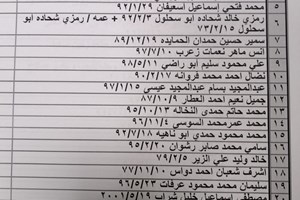 محمد فتحي إسماعيل اسعيفان ٩٢/١/٢٩ ٥
رمزي خالد شحاده ابو سحلول ٩٢/٢/٣ + عمه / رمزي شحاده ابو ٦
سحلول ٧٣/٢/١٥
سمير حسين حمدان الحمايده ٨٩/١٢/١٩ ٧
انس ماهر نعمات زعرب ٩٧/٧/١٠ ٨
علي محمود سليم ابو راضي ٩٨/٥/١١ ٩
نضال احمد محمد فروانه ٩٠/٢/١٧ ١٠
عبدالمجيد بسام عبدالمجيد عيسى ٩٧/١/١٥ ١١
جميل نعيم احمد العطار ٨٧/١٠/٩ ١٢
محمد حاتم حمدي النخاله ٩٥/١٠/٥ ١٣
محمد عمر محمد السوسي ٩٦/١١/٤ ١٤
محمد محمود حمدي ابو ناهيه ٩٢/٧/١٨ ١٥
سامي محمد صابر رشوان ٩٥/٢/٢٠ ١٦
خالد وليد علي الزير ٧٩/٢/٥ ١٧
اشرف شعبان احمد دواس ٧٧/٨/١١ ١٨
سليمان محمد محمود عرفات ٩٦/٥/٢٣ ١٩
مصطفى إسماعيل خليل شراب ٢٠٠١/٥/١٩ ٢٠